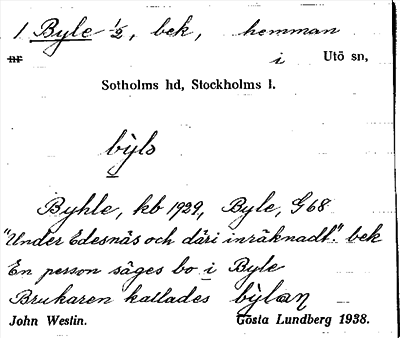 1 Byle ½, bek, hemman
nr i Utö sn,
Sotholms hd, Stockholms l.
bỳlə
Byhle, kb 1929, Byle, G 68
"Under Edesnäs och däri inräknadt". bek
En person säges bo i Byle
Brukaren kallades bỳlaɳ
John Westin. Gösta Lundberg 1938.